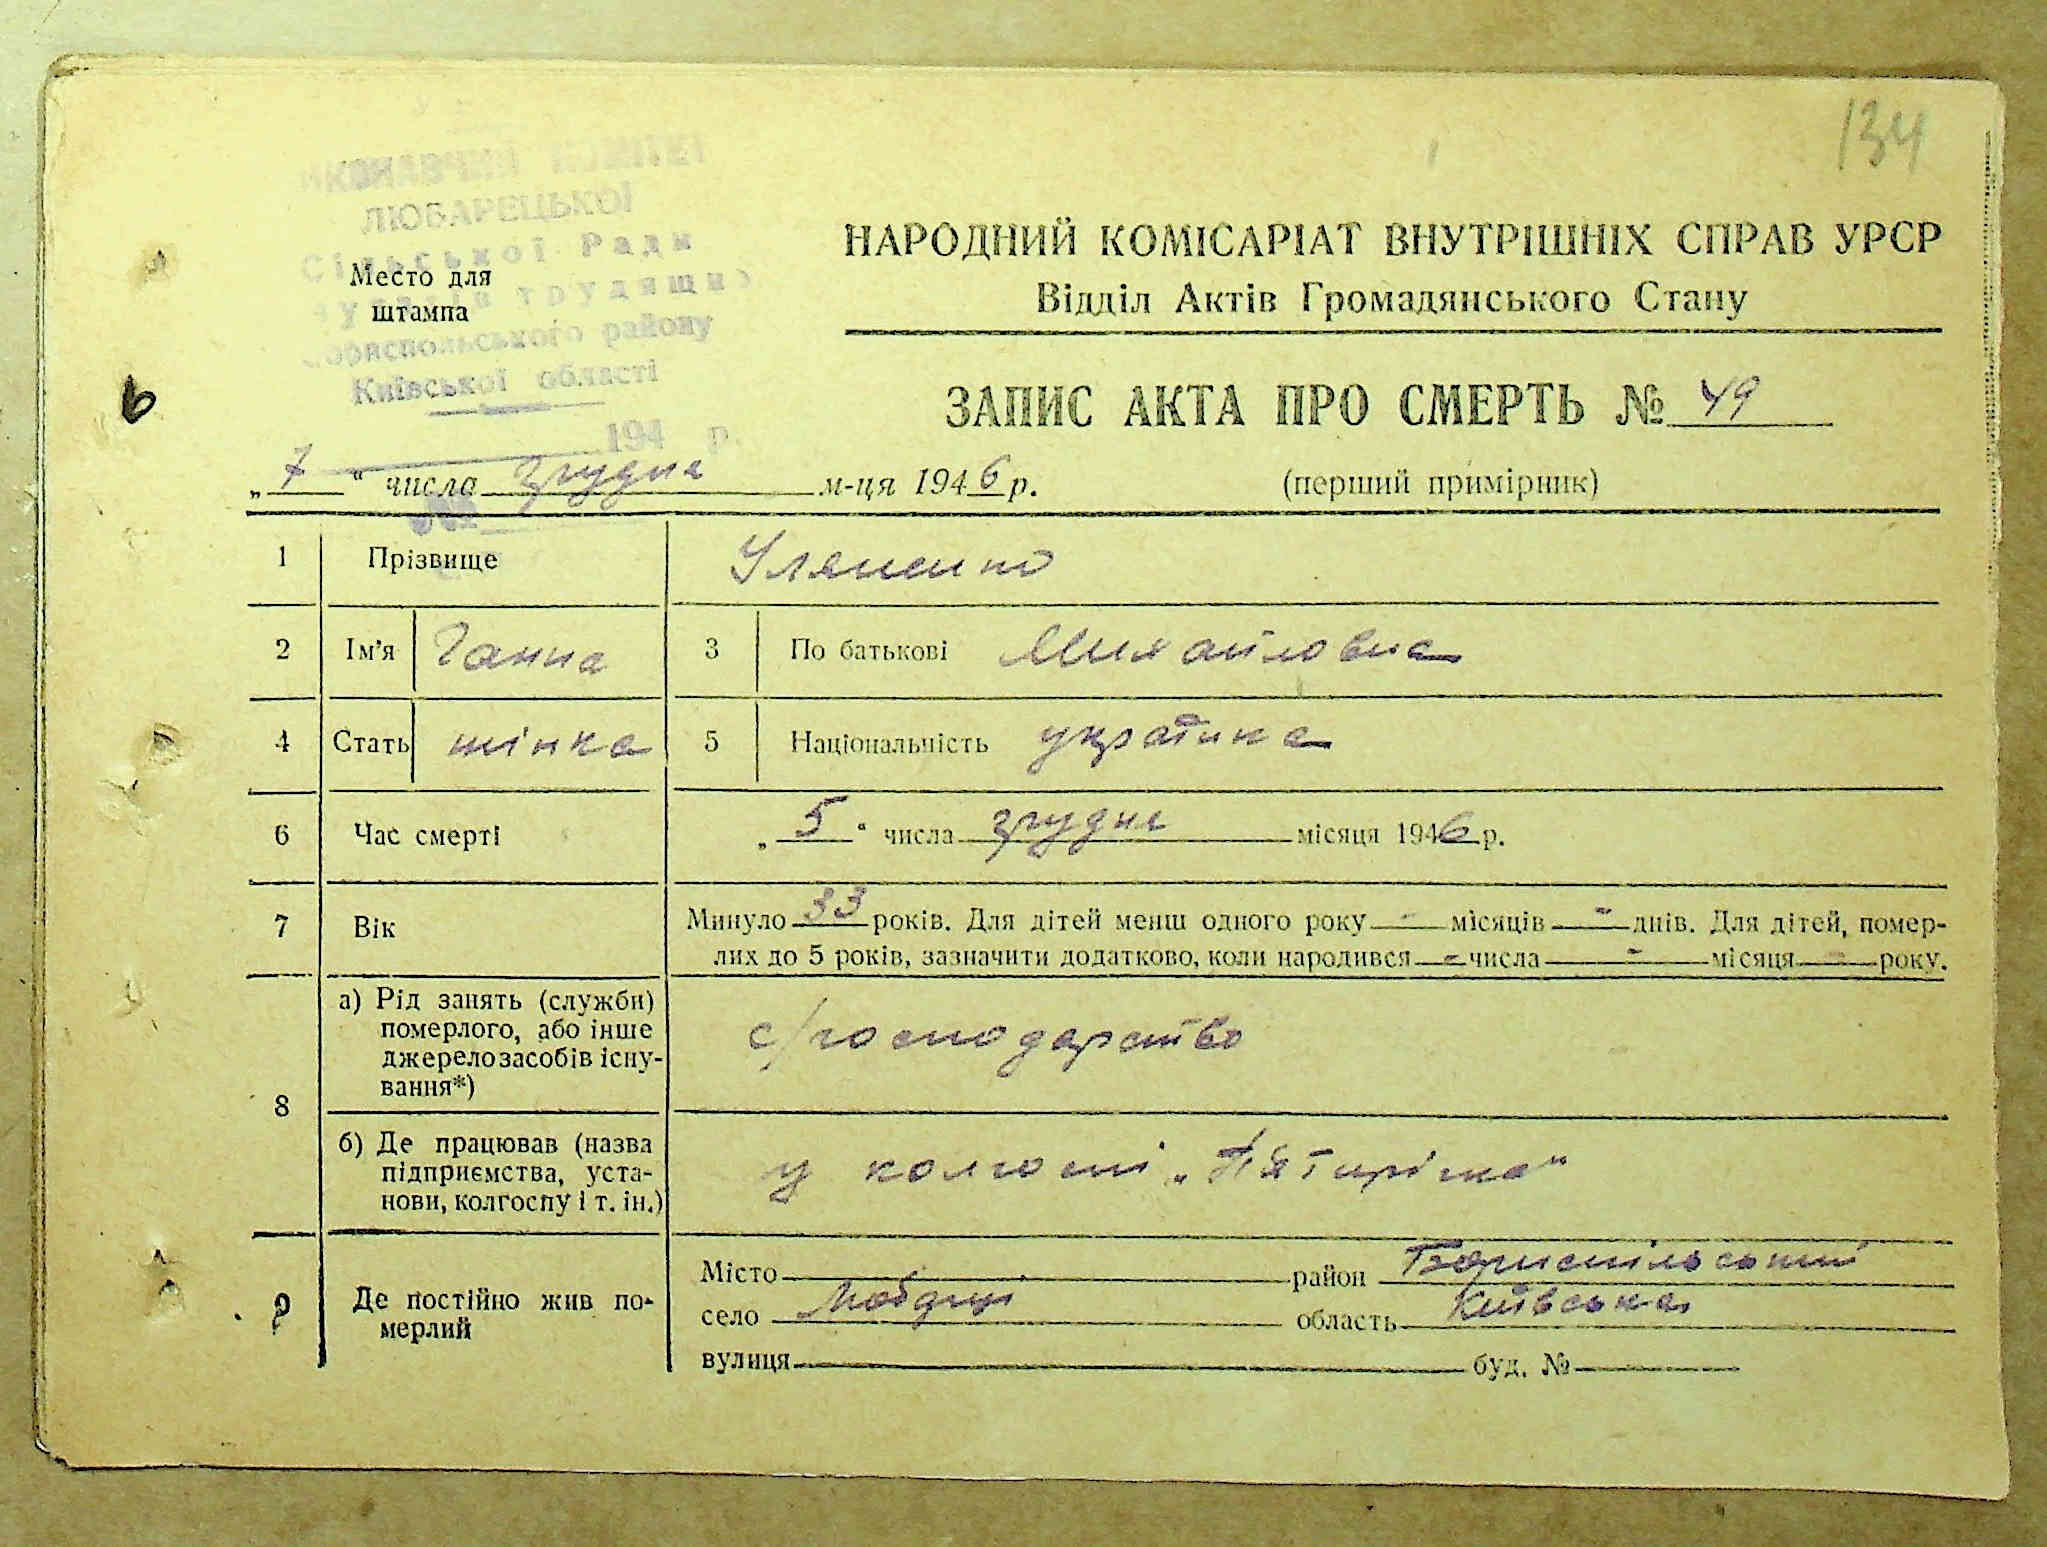 134
ВИКОНАВЧИЙ КОМІТЕТ
ЛЮБАРЕЦЬКОЇ
Сільської Ради
трудящих
Бориспольського району
Київської області
194 р.
№
Место для
штампа
НАРОДНИЙ КОМІСАРІАТ ВНУТРІШНІХ СПРАВ УРСР
Відділ Актів Громадянського Стану
ЗАПИС АКТА ПРО СМЕРТЬ № 49
„7“ числа грудня м-ця 1946 р.
(перший примірник)
1 Прізвище Уляненко
2 Ім'я Ганна 3 По батькові Михайловна
4 Стать жінка 5 Національність українка
6 Час смерті „5“ числа грудня місяця 1946 р.
7 Вік Минуло 33 років. Для дітей менш одного року - місяців - днів. Для дітей, помер-
лих до 5 років, зазначити додатково, коли народився - числа - місяця - року.
8 а) Рід занять (служби)
померлого, або інше
джерело засобів існу-
вання*)
с/господарство
б) Де працював (назва
підприємства, уста-
нови, колгоспу і т. ін.)
у колгоспі „П'ятирічка“
9 Де постійно жив по-
мерлий
Місто район Бориспільський
село область Київська
вулиця буд. №